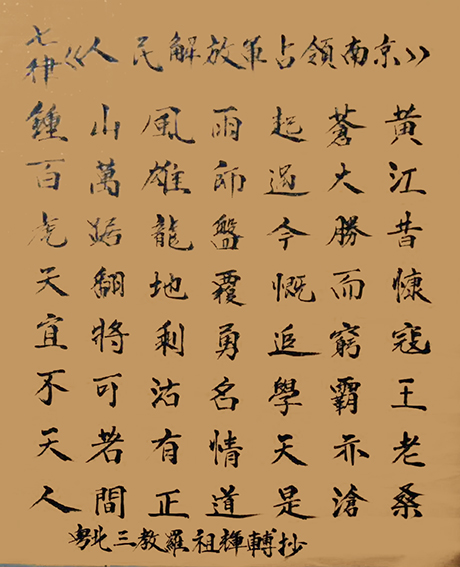 七律《人民解放軍占領南京》
鍾山風雨起蒼黃
百萬雄師過大江
虎踞龍盤今勝昔
天翻地覆慨而慷
宜將剩勇追窮寇
不可沽名學霸王
天若有情天亦老
人間正道是滄桑
粵北三教羅祖輝轉抄